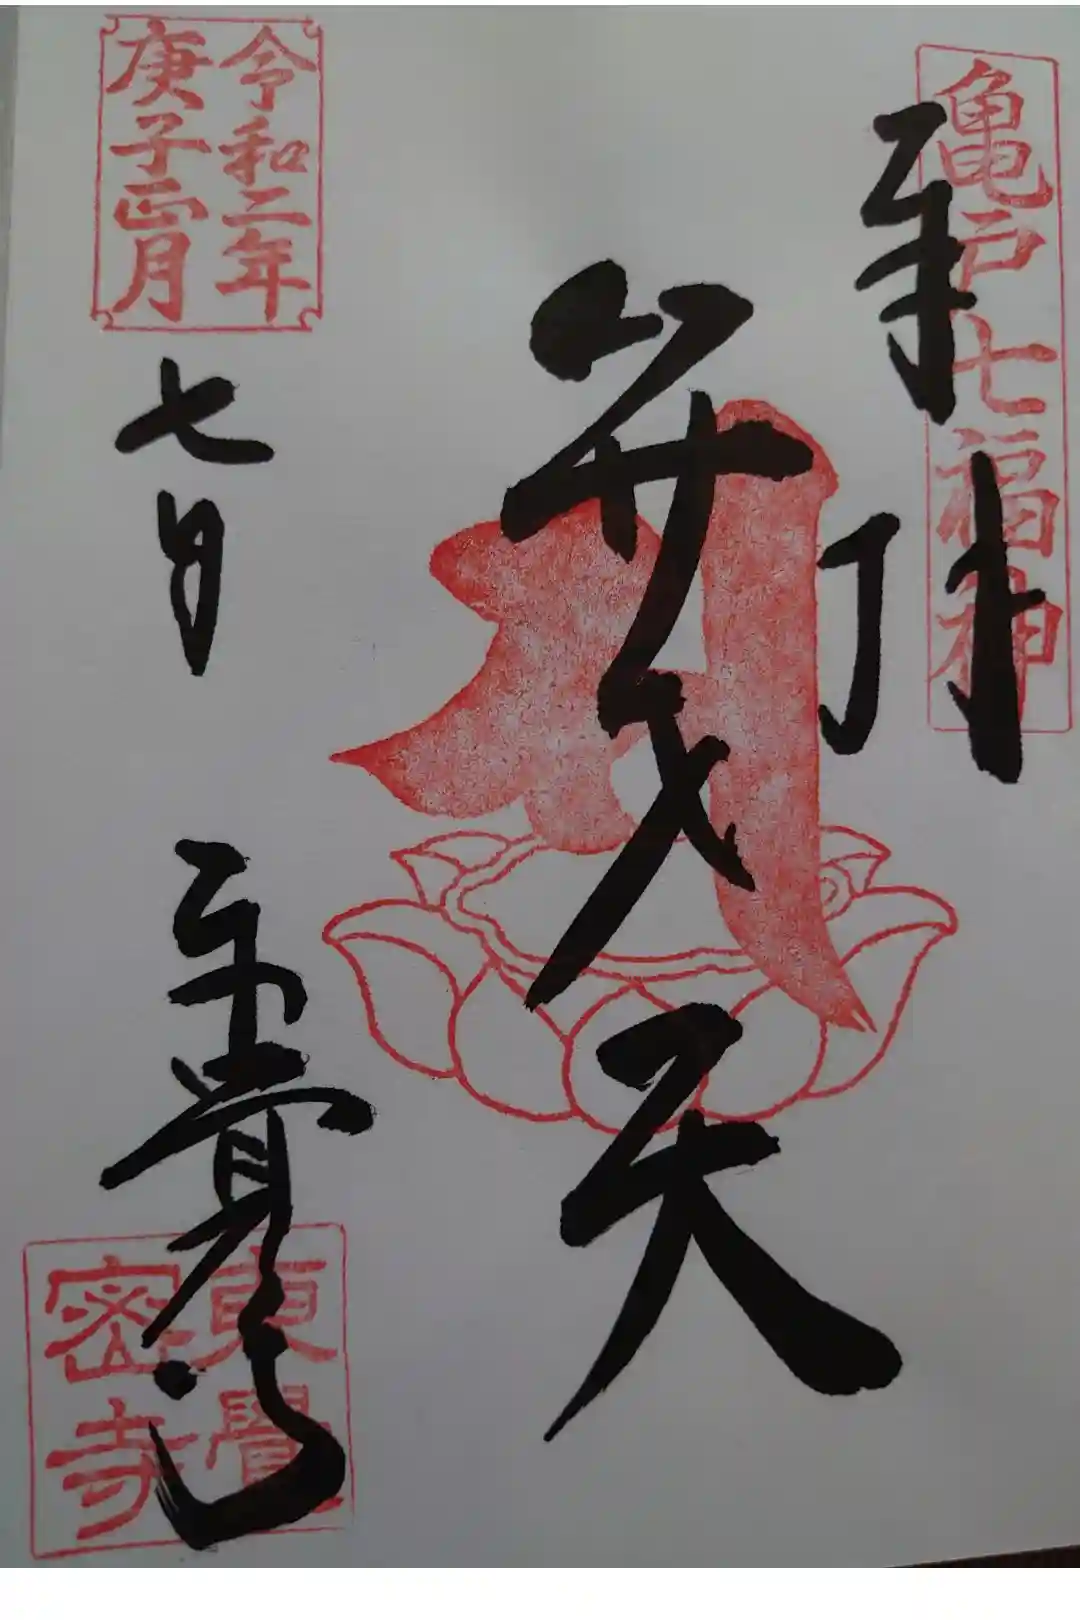 亀戸七福神
奉拝
弁才天
令和二年
庚子正月
七日
東覚寺
東覺
密寺